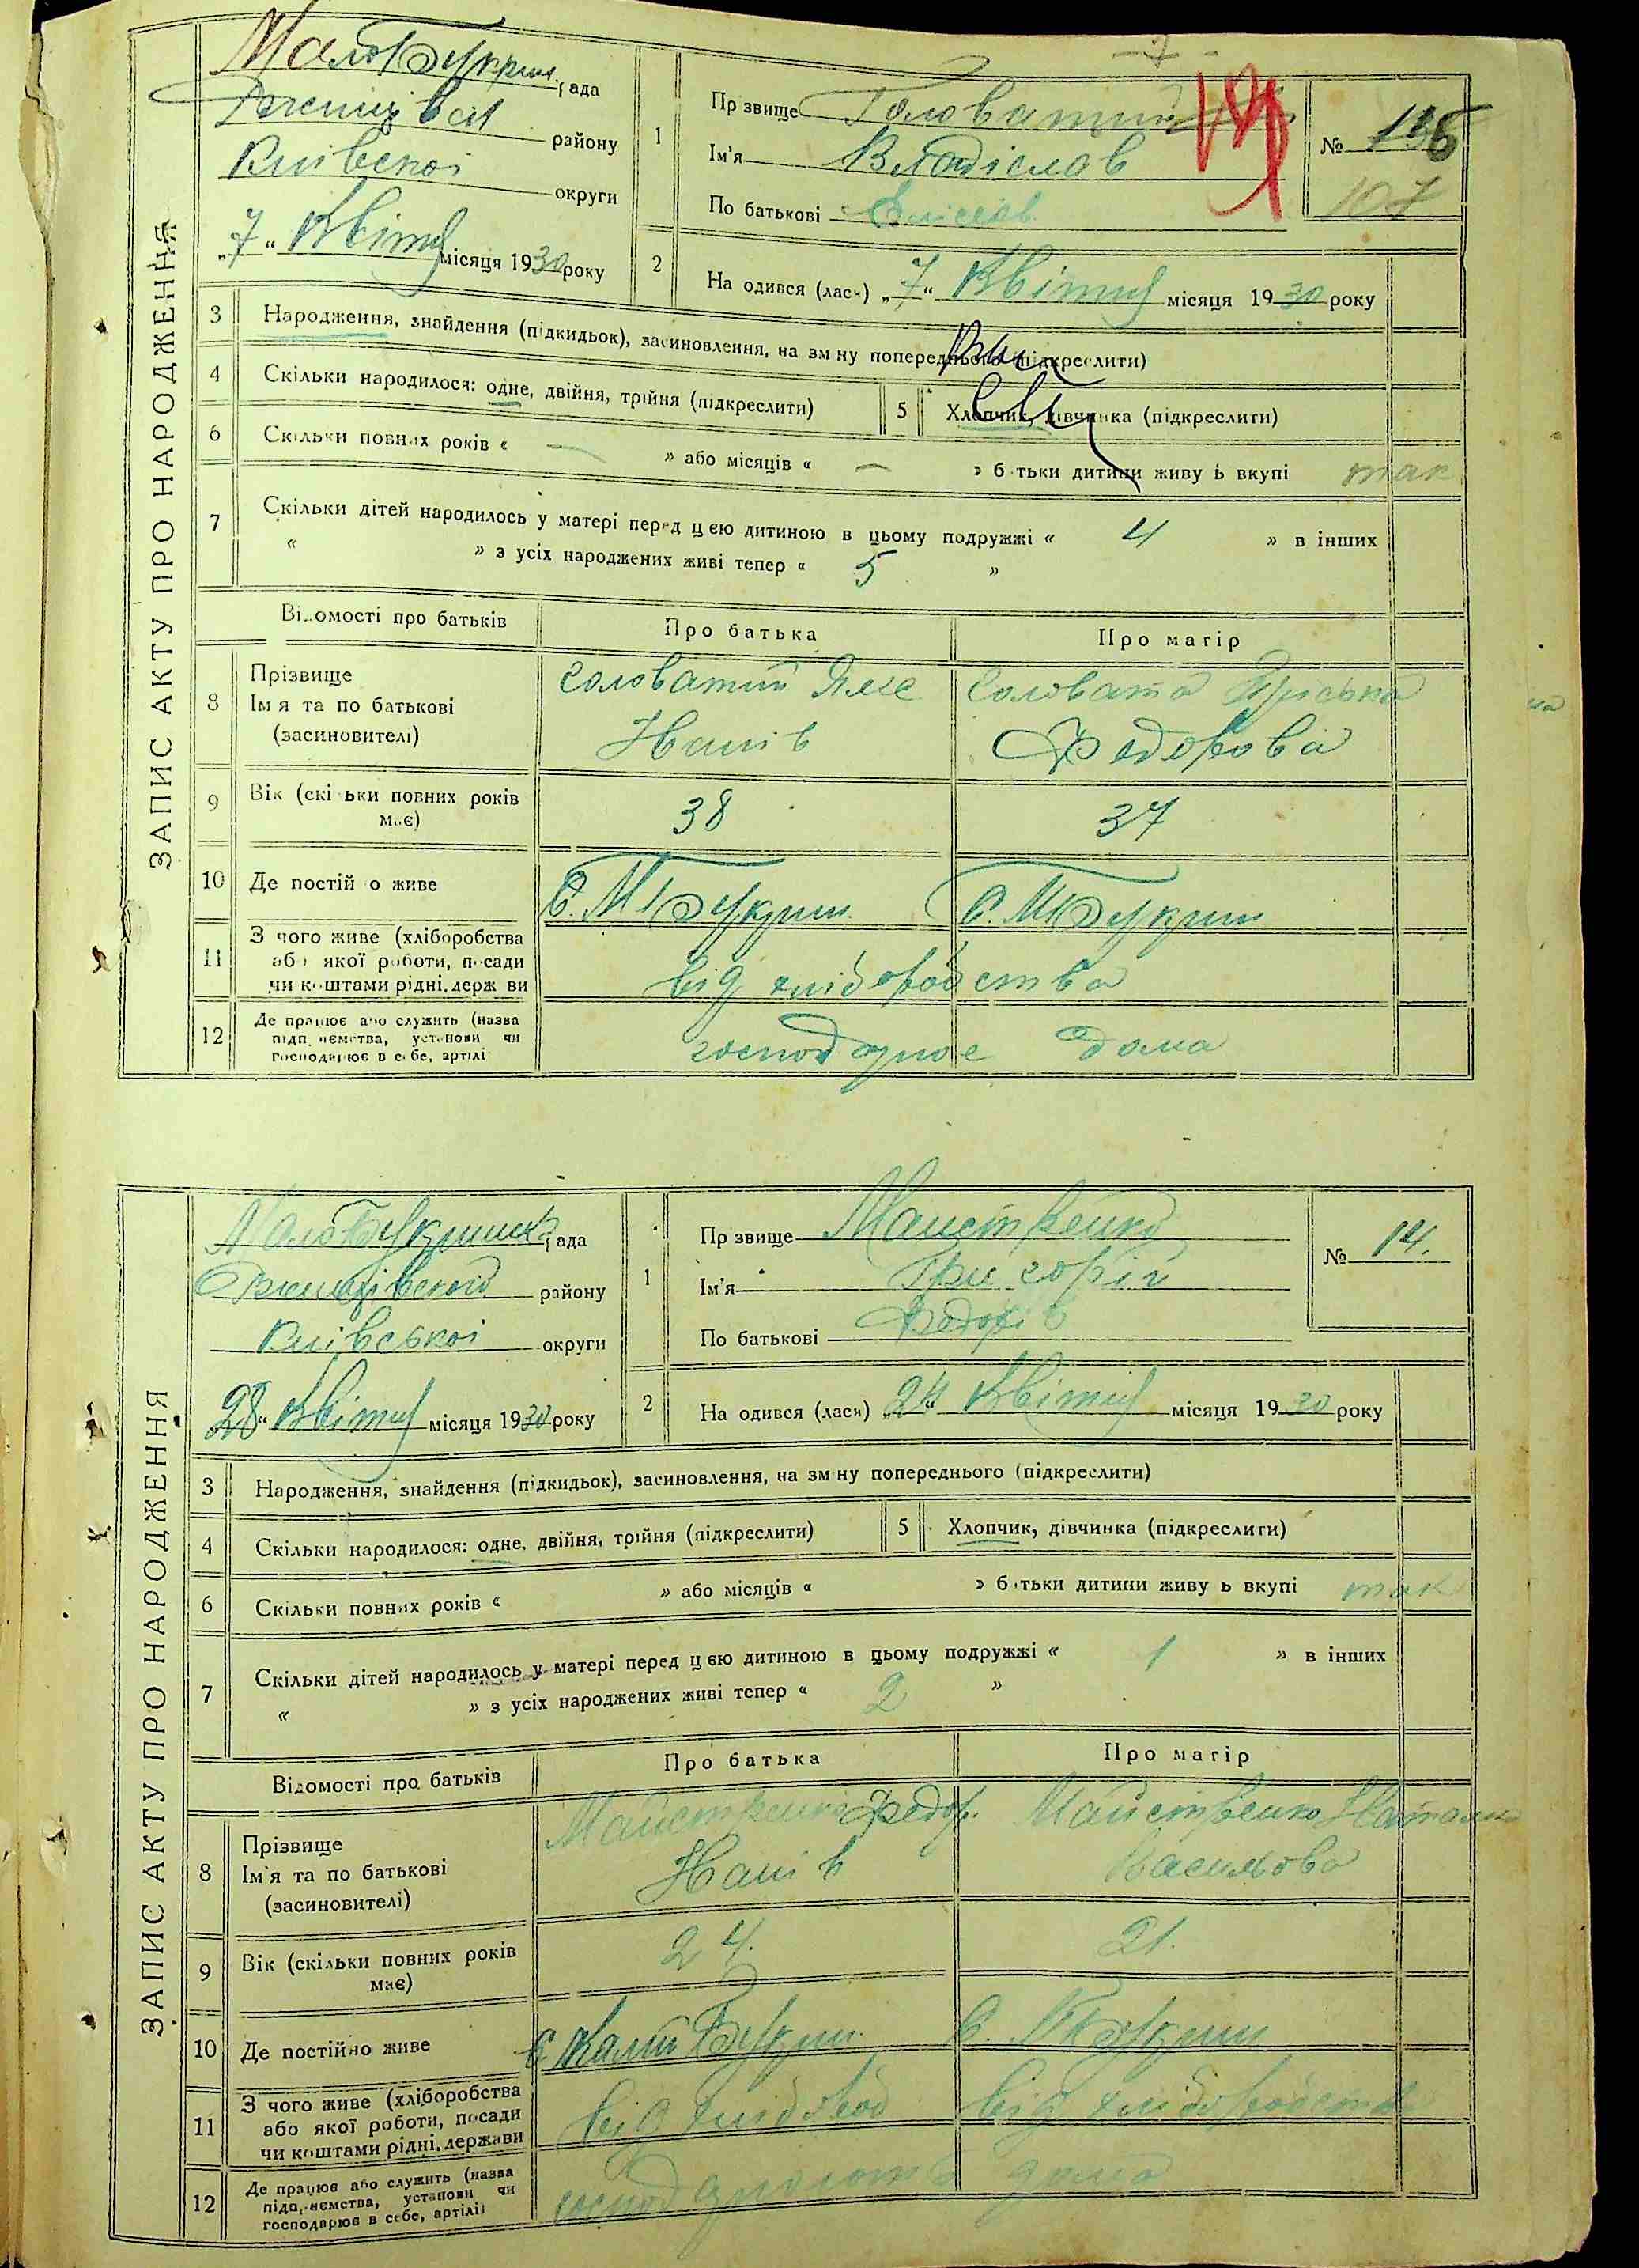 ЗАПИС АКТУ ПРО НАРОДЖЕННЯ
МалоБукрин. рада
району
Київскої округи
„7“ Квітня місяця 1930 року
1
Прізвище Головатий
Ім'я Владіслав
По батькові
№
107
2
На одився (лася) „7“ Квітня місяця 1930 року
3 Народження, знайдення (підкидьок), засиновлення, на зміну попереднього (підкреслити)
4 Скільки народилося: одне, двійня, трійня (підкреслити)
5 Хлопчик, дівчинка (підкреслити)
6 Скільки повних років « — » або місяців « — » батьки дитини живуть вкупі так
7 Скільки дітей народилось у матері перед цією дитиною в цьому подружжі « 4 » в інших
« » з усіх народжених живі тепер « 5 »
Відомості про батьків
Про батька
Про матір
8 Прізвище
Імя та по батькові
(засиновителі)
Головатий
Іванів
Головата Пріська
Федорова
9 Вік (скільки повних років має)
38
37
10 Де постійно живе
С. М Букрин.
С. М Букрин
11 З чого живе (хліборобства або якої роботи, посади чи коштами рідні, держави
від хліборобства
12 Де працює або служить (назва підприємства, установи чи господарює в себе, артілі
господарює дома
ЗАПИС АКТУ ПРО НАРОДЖЕННЯ
рада
району
Київської округи
„28“ Квітня місяця 1930 року
1
Прізвище Майстренко
Ім'я Григорій
По батькові Федорів
№ 14.
2
На одився (лася) „24“ Квітня місяця 1930 року
3 Народження, знайдення (підкидьок), засиновлення, на зміну попереднього (підкреслити)
4 Скільки народилося: одне, двійня, трійня (підкреслити)
5 Хлопчик, дівчинка (підкреслити)
6 Скільки повних років « » або місяців « » батьки дитини живуть вкупі так
7 Скільки дітей народилось у матері перед цією дитиною в цьому подружжі « 1 » в інших
« » з усіх народжених живі тепер « 2 »
Відомості про батьків
Про батька
Про матір
8 Прізвище
Ім'я та по батькові
(засиновителі)
Майстренко Федор.
Іванів
Майстренко Наталка
Васильова
9 Вік (скільки повних років має)
24.
21.
10 Де постійно живе
С. Малий Букрин.
С. М Букрин
11 З чого живе (хліборобства або якої роботи, посади чи коштами рідні, держави
від хлібороб
від хліборобства
12 Де працює або служить (назва підприємства, установи чи господарює в себе, артілі)
дома